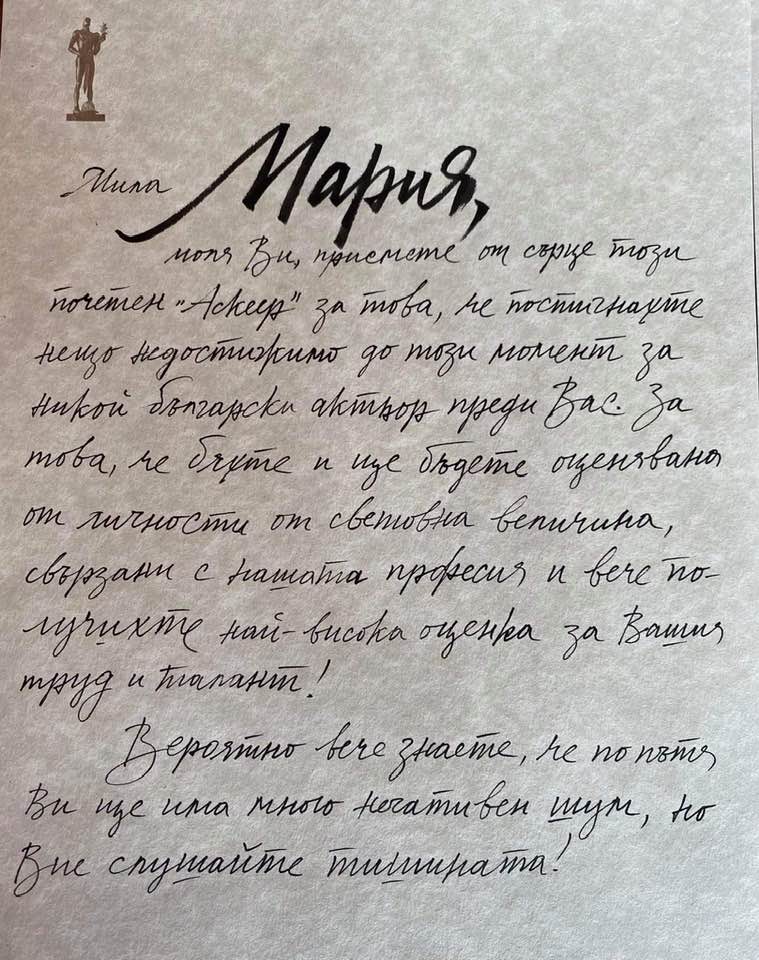 Мила Мария,
моля Ви, приемете от сърце този
почетен „Аскеер" за това, че постигнахте
нещо недостижимо до този момент за
никой български актьор преди Вас. За
това, че бяхте и ще бъдете оценявана
от личности от световна величина,
свързани с нашата професия и вече по-
лучихте най-висока оценка за Вашия
труд и талант!
Вероятно вече знаете, че по пътя
Ви ще има много негативен шум, но
Вие слушайте тишината!